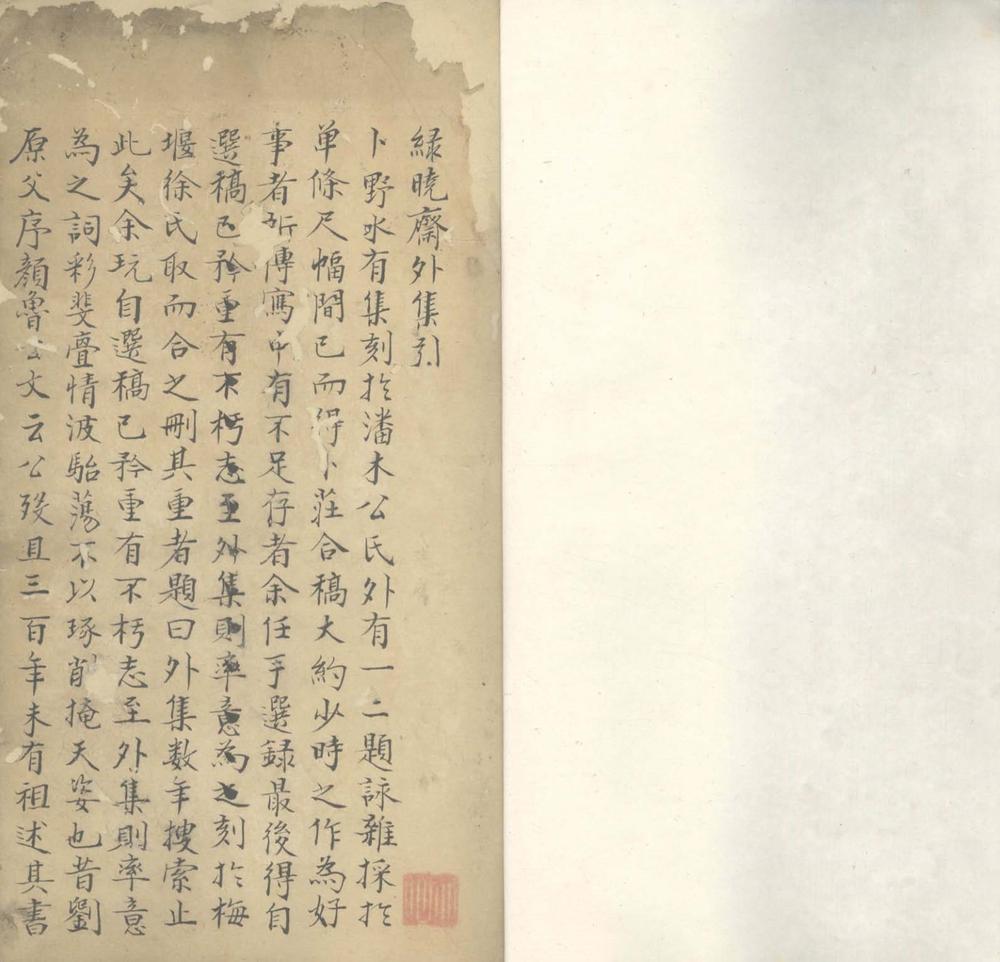 緑曉齋外集引
卜野水有集刻扵潘木公氏外有一二題詠雜採扵
单條尺幅間已而得卜莊合稿大約少時之作為好
事者所傳寫中有不足存者余任手選録最後得自
選稿已矜重有不朽志至外集則率意為之刻扵梅
堰徐氏取而合之刪其重者題曰外集数年搜索止
此矣余玩自選稿已矜重有不朽志至外集則率意
為之詞彩斐亹情波駘蕩不以琢削掩天姿也昔劉
原父序顏魯公文云公歿且三百年未有祖述其書